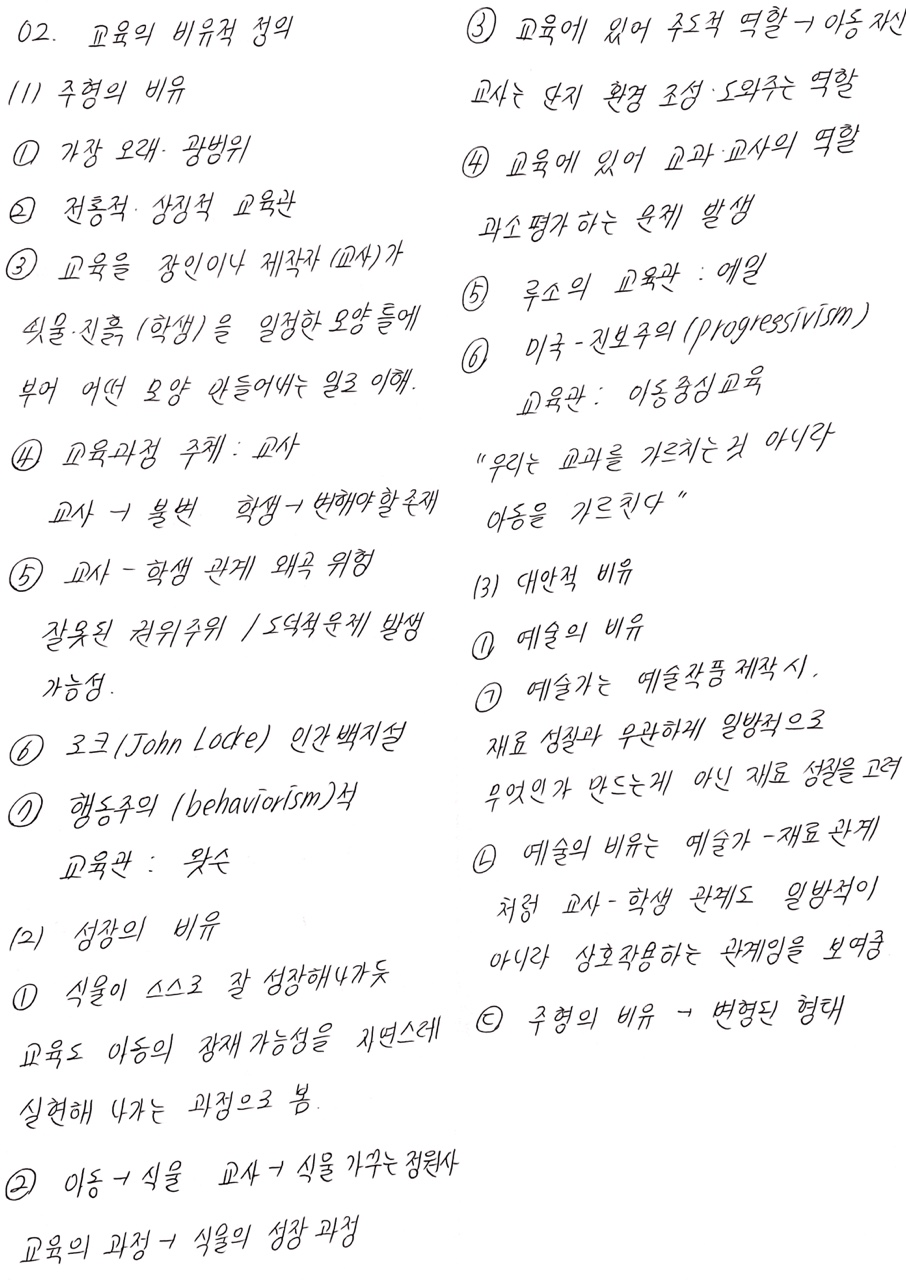 02. 교육의 비유적 정의
(1) 주형의 비유
① 가장 오래·광범위
② 전통적·상징적 교육관
③ 교육을 장인이나 제작자(교사)가
쇳물·진흙(학생)을 일정한 모양 틀에
부어 어떤 모양 만들어내는 일로 이해.
④ 교육과정 주체: 교사
교사 → 불변 학생 → 변해야할 존재
⑤ 교사 - 학생 관계 왜곡 위험
잘못된 권위주위 / 도덕적문제 발생
가능성.
⑥ 로크(John Locke) 인간백지설
⑦ 행동주의(behaviorism)적
교육관 : 왓슨
(2) 성장의 비유
① 식물이 스스로 잘 성장해나가듯
교육도 아동의 잠재가능성을 자연스레
실현해 나가는 과정으로 봄.
② 아동→식물 교사→식물 가꾸는 정원사
교육의 과정→식물의 성장 과정
③ 교육에 있어 주도적 역할→아동 자신
교사는 단지 환경 조성·도와주는 역할
④ 교육에 있어 교과·교사의 역할
과소평가 하는 문제 발생
⑤ 루소의 교육관 : 에밀
⑥ 미국-진보주의(progressivism)
교육관 : 아동중심교육
"우리는 교과를 가르치는 것 아니라
아동을 가르친다"
(3) 대안적 비유
① 예술의 비유
㉠ 예술가는 예술작품 제작 시,
재료 성질과 무관하게 일방적으로
무엇인가 만드는게 아닌 재료 성질을 고려
㉡ 예술의 비유는 예술가-재료 관계
처럼 교사-학생 관계도 일방적이
아니라 상호작용하는 관계임을 보여줌
㉢ 주형의 비유 → 변형된 형태